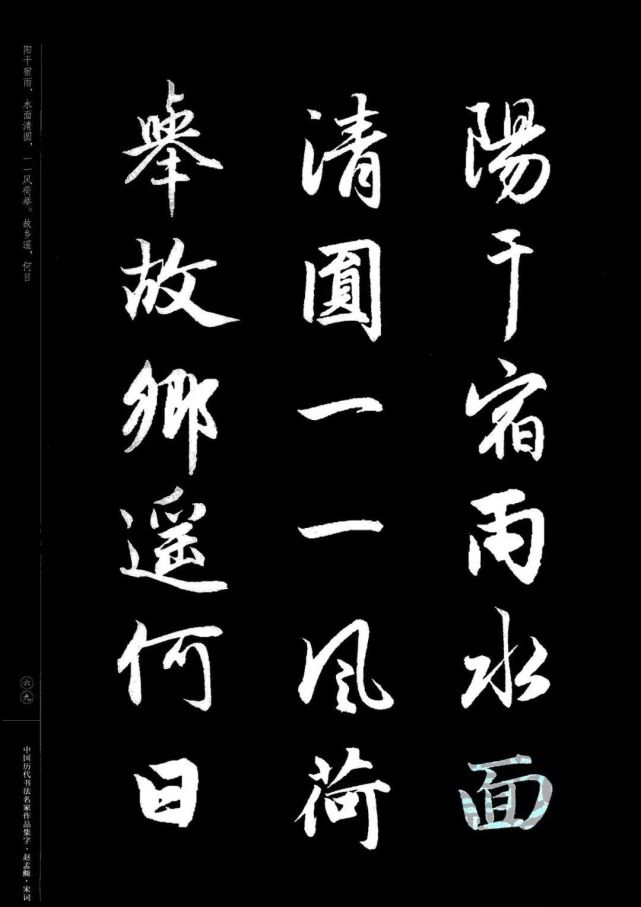 陽干宿雨水面
清圓一一風荷
舉故鄉遥何日
阳干宿雨，水面清圆，一一风荷举。故乡遥，何日
六九
中国历代书法名家作品集字·赵孟頫·宋词